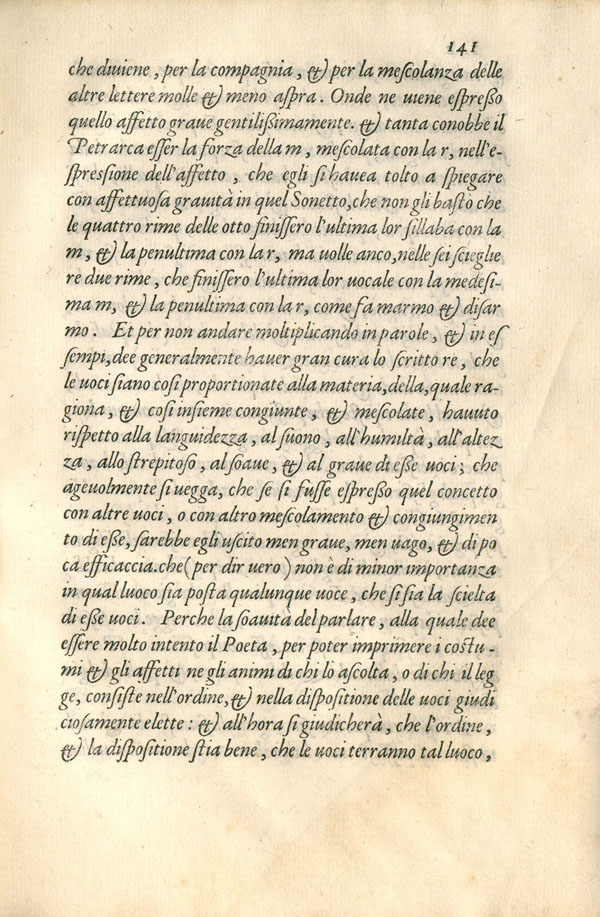 141
che diuiene, per la compagnia, & per la mescolanza delle
altre lettere molle & meno aspra. Onde ne uiene espreßo
quello affetto graue gentilißimamente. & tanta conobbe il
Petrarca esser la forza della m, mescolata con la r, nell'e-
spressione dell'affetto, che egli si hauea tolto a spiegare
con affettuosa grauità in quel Sonetto, che non gli bastò che
le quattro rime delle otto finissero l'ultima lor sillaba con la
m, & la penultima con la r, ma uolle anco, nelle sei scieglie
re due rime, che finissero l'ultima lor uocale con la medesi-
ma m, & la penultima con la r, come fa marmo & disar
mo. Et per non andare moltiplicando in parole, & in es
sempi, dee generalmente hauer gran cura lo scritto re, che
le uoci siano cosi proportionate alla materia, della, quale ra-
giona, & cosi insieme congiunte, & mescolate, hauuto
rispetto alla languidezza, al suono, all'humiltà, all'altez
za, allo strepitoso, al soaue, & al graue di eße uoci; che
ageuolmente si uegga, che se si fusse espreßo quel concetto
con altre uoci, o con altro mescolamento & congiungimen
to di eße, sarebbe egli uscito men graue, men uago, & di po
ca efficaccia. che (per dir uero) non è di minor importanza
in qual luoco sia posta qualunque uoce, che si sia la scielta
di eße uoci. Perche la soauità del parlare, alla quale dee
essere molto intento il Poeta, per poter imprimere i costu-
mi & gli affetti ne gli animi di chi lo ascolta, o di chi il leg
ge, consiste nell'ordine, & nella dispositione delle uoci giudi
ciosamente elette: & all'hora si giudicherà, che l'ordine,
& la dispositione stia bene, che le uoci terranno tal luoco,